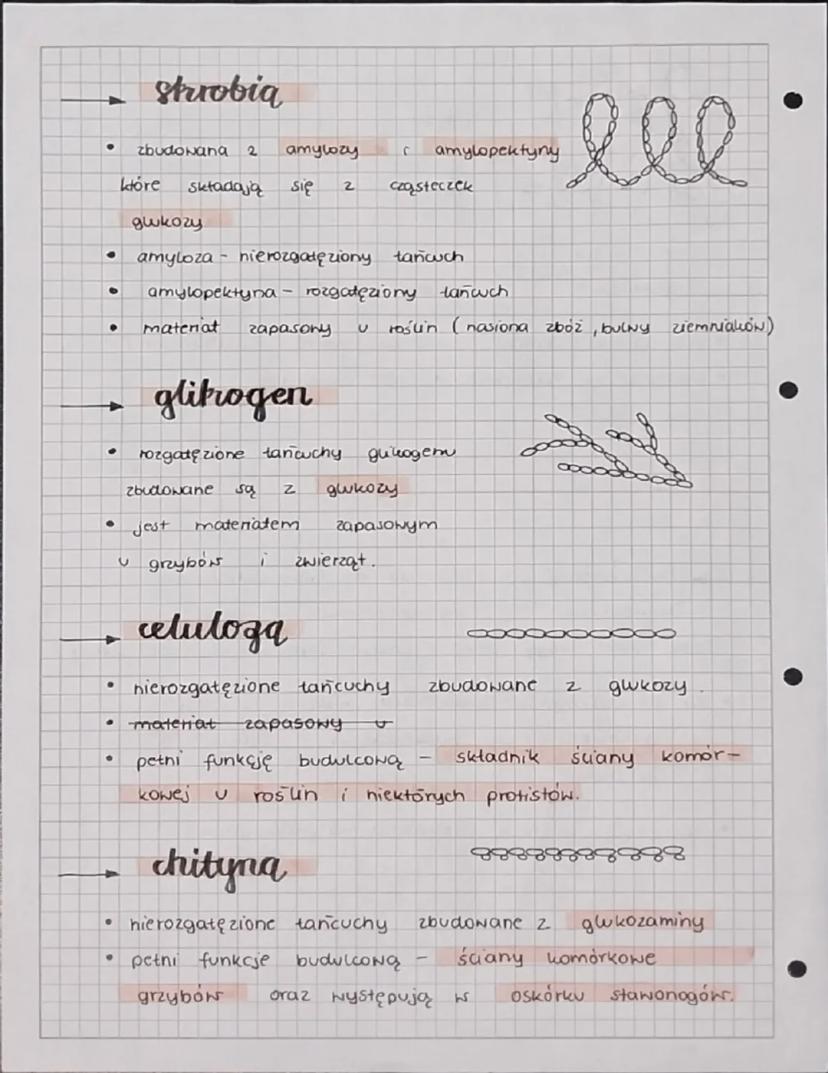 → skrobia
• zbudowana z amylozy i amylopektyny
które składają się z cząsteczek
glukozy
• amyloza - nierozgałęziony łańcuch
• amylopektyna - rozgałęziony łańcuch
• materiał zapasowy u roślin (nasiona zbóż, bulwy ziemniaków)
→ glikogen
• rozgałęzione łańcuchy glikogenu
zbudowane są z glukozy
• jest materiałem zapasowym
u grzybów i zwierząt.
→ celuloza
• nierozgałęzione łańcuchy zbudowane z glukozy.
• materiał zapasowy u
• pełni funkcję budulcową - składnik ściany komór-
kowej u roślin i niektórych protistów.
→ chityna
• nierozgałęzione łańcuchy zbudowane z glukozaminy
• pełni funkcje budulcową - ściany komórkowe
grzybów oraz występują w oskórku stawonogów.